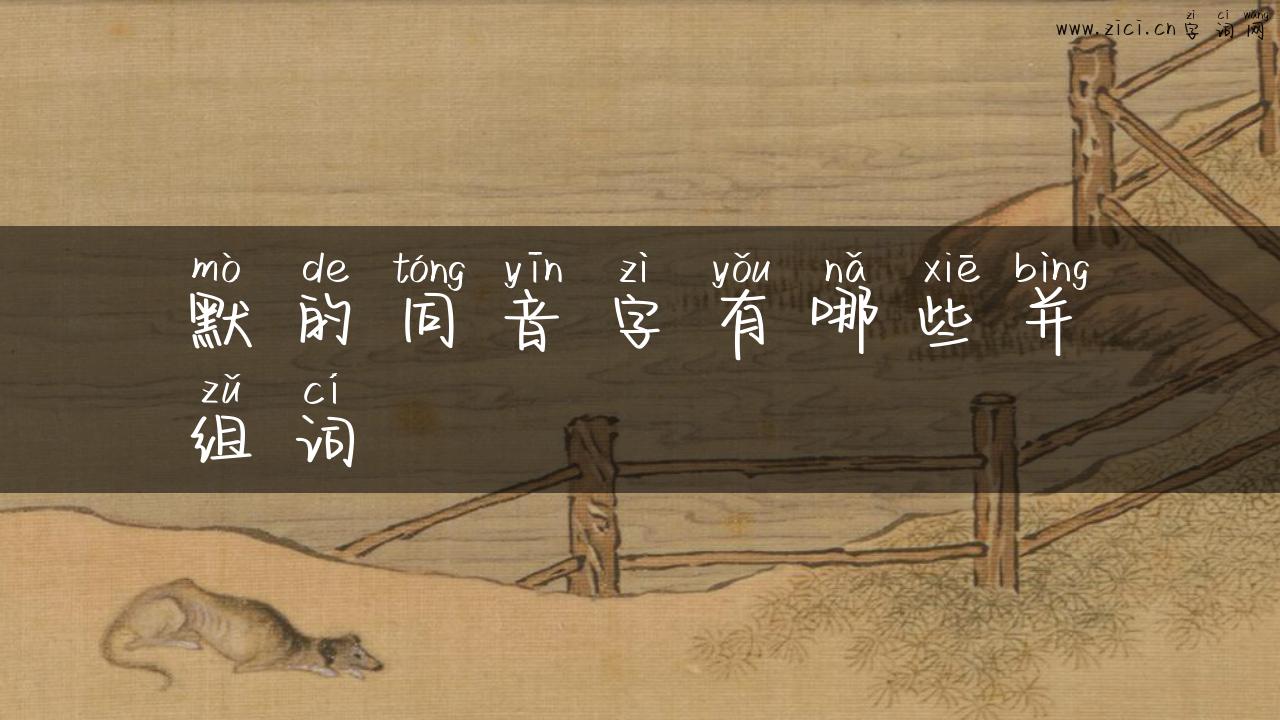 zì cí wǎng
www.zici.cn 字词网
mò de tóng yīn zì yǒu nǎ xiē bìng
默的同音字有哪些并
zǔ cí
组词